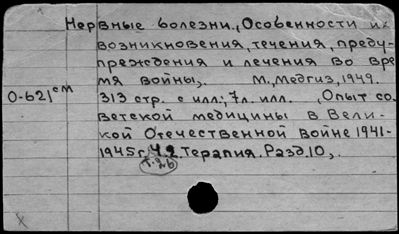 Нервные болезни., Особенности их
возникновения, течения, преду-
преждения и лечения во вре
мя войны,. М., Медгиз, 1949.
0-621 см 313 стр. с илл.; 7л. илл. ,Опыт со
ветской медицины в Вели-
кой Отечественной войне 1941-
1945г, 4.2. Терапия. Разд. 10,.
т. 26